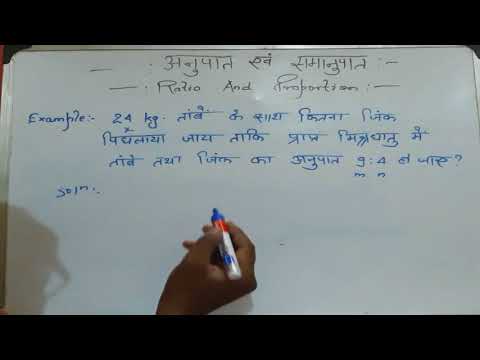 —: अनुपात एवं समानुपात :-
—: Ratio And Proportion :—
Example:- 24 kg. तांबे के साथ कितना जिंक
x
पिघलाया जाय ताकि प्राप्त मिश्रधातु में
तांबे तथा जिंक का अनुपात 9:4 हो जाए?
m n
Soln:-